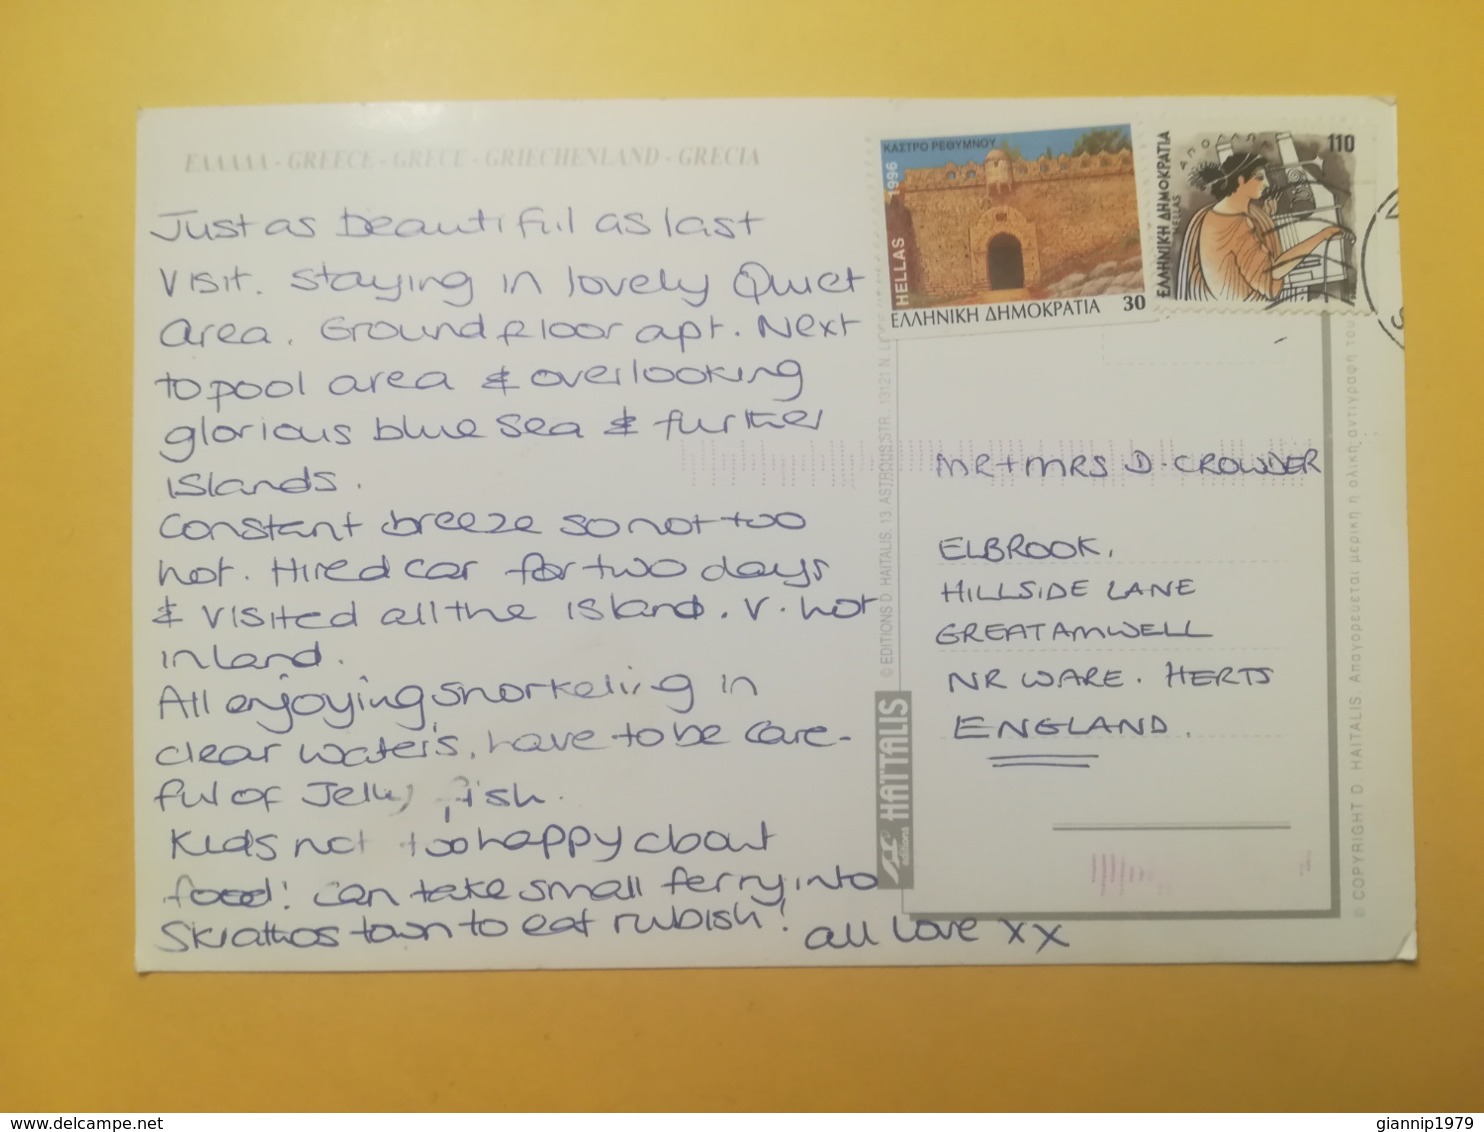 ΕΛΛΑΔΑ - GREECE - GRECE - GRIECHENLAND - GRECIA
Just as beautiful as last
visit. Staying in lovely Quiet
area. Ground floor apt. Next
to pool area & overlooking
glorious blue sea & further
islands.
Constant breeze so not too
hot. Hired car for two days
& visited all the island. V. hot
inland.
All enjoying snorkeling in
clear waters, have to be care-
ful of Jelly fish.
Kids not too happy about
food! can take small ferry into
Skiathos town to eat rubish! all love xx
ΚΑΣΤΡΟ ΡΕΘΥΜΝΟΥ
1996
HELLAS
ΕΛΛΗΝΙΚΗ ΔΗΜΟΚΡΑΤΙΑ 30
ΑΠΟΛΛΩΝ
110
ΕΛΛΗΝΙΚΗ ΔΗΜΟΚΡΑΤΙΑ
HELLAS
MR + MRS D. CROWDER
ELBROOK,
HILLSIDE LANE
GREAT AMWELL
NR WARE. HERTS
ENGLAND.
© EDITIONS D. HAITALIS, 13, ASTROUS STR. 13121 N.
HAITALIS
editions
© COPYRIGHT D. HAITALIS Απαγορευεται μερικη η ολικη αντιγραφη του
www.delcampe.net
giannip1979